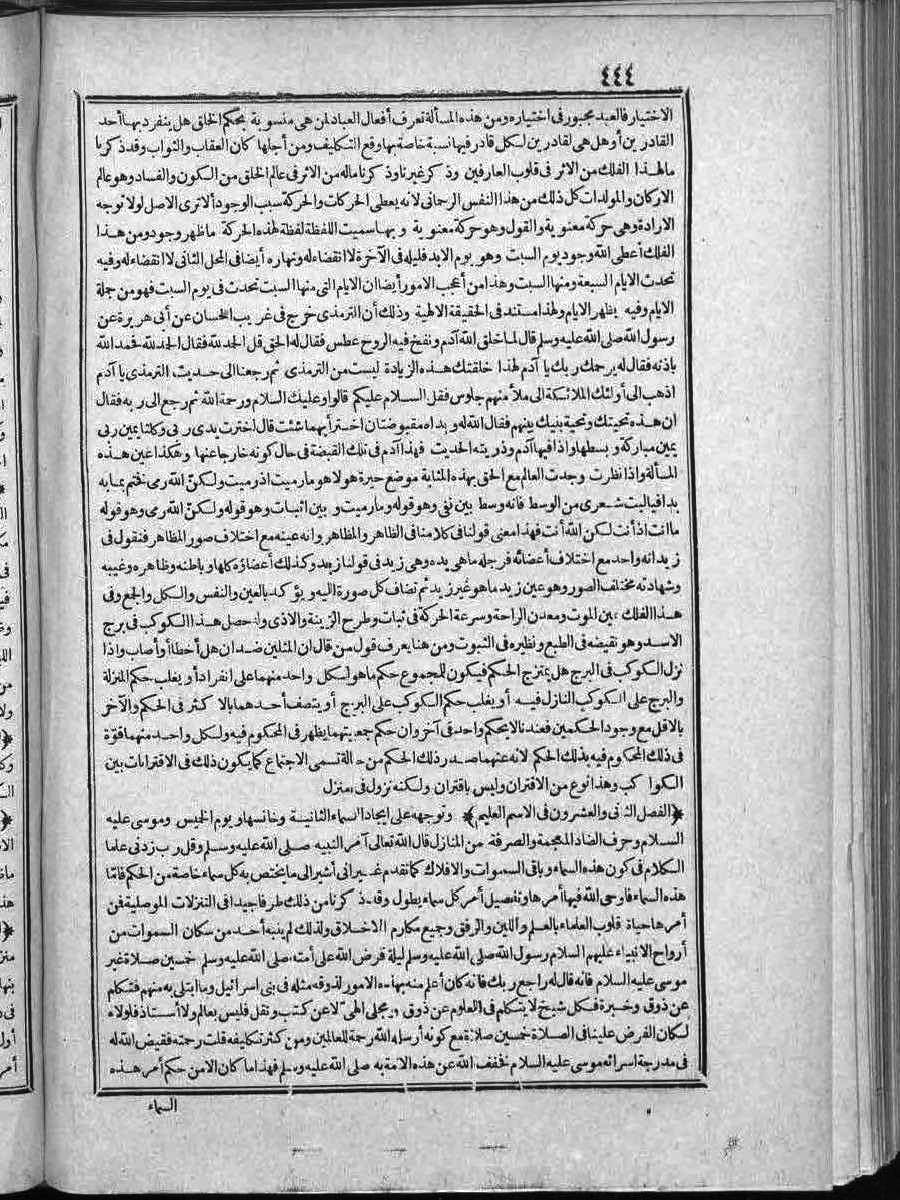 ٤٤٤
الاختيار فالعبد مجبور فى اختياره ومن هذه المسألة تعرف أفعال العباد لمن هى منسوبة بحكم الخلق هل ينفرد بها أحد
القادرين أو هل هى لقادرين لكل قادر فيها نسبة خاصة بها وقع التكليف ومن أجلها كان العقاب والثواب وقد ذكرنا
ما لهذا الفلك من الاثر فى قلوب العارفين وذكر غيرنا وذكرنا ماله من الاثر فى عالم الخلق من الكون والفساد وهو عالم
الاركان والمولدات كل ذلك من هذا النفس الرحمانى لانه يعطى الحركات والحركة سبب الوجود ألا ترى الاصل لولا توجه
الارادة وهى حركة معنوية والقول وهو حركة معنوية وبها سميت اللفظة لفظة لهذه الحركة ما ظهر وجود ومن هذا
الفلك أعطى الله وجود يوم السبت وهو يوم الابد فليله فى الآخرة لا انقضاء له ونهاره أيضا فى المحل الثانى لا انقضاء له وفيه
تحدث الايام السبعة ومنها السبت وهذا من أعجب الامور أيضا ان الايام التى منها السبت تحدث فى يوم السبت فهو من جملة
الايام وفيه يظهر الايام ولهذا مستند فى الحقيقة الالهية وذلك أن الترمذى خرج فى غريب الحسان عن أبى هريرة عن
رسول الله صلى الله عليه وسلم قال لما خلق الله آدم ونفخ فيه الروح عطس فقال له الحق قل الحمد لله فقال الحمد لله فحمد الله
باذنه فقال له يرحمك ربك يا آدم لهذا خلقتك هذه الزيادة ليست من الترمذى ثم رجعنا الى حديث الترمذى يا آدم
اذهب الى أولئك الملائكة الى ملأ منهم جلوس فقل السلام عليكم قالوا وعليك السلام ورحمة الله ثم رجع الى ربه فقال
ان هذه تحيتك وتحية بنيك بينهم فقال الله له ويداه مقبوضتان اختر أيهما شئت قال اخترت يمين ربى وكلتا يدى ربى
يمين مباركة وبسطها واذا فيها آدم وذريته الحديث فهذا آدم فى تلك القبضة فى حال كونه خارجا عنها وهكذا عين هذه
المسألة واذا نظرت وجدت العالم مع الحق بهذه المثابة موضع حيرة هو لا هو ما رميت اذ رميت ولكن الله رمى فختم بما به
بدا فياليت شعرى من الوسط فانه وسط بين نفى وهو قوله وما رميت وبين اثبات وهو قوله ولكن الله رمى وهو قوله
ما أنت اذ أنت لكن الله أنت فهذا معنى قولنا فى كلامنا فى الظاهر والمظاهر وانه عينه مع اختلاف صور المظاهر فنقول فى
زيد انه واحد مع اختلاف أعضائه فرجله ما هى يده وهى زيد فى قولنا زيد وكذلك أعضاؤه كلها وباطنه وظاهره وغيبه
وشهادته مختلف الصور وهو عين زيد ما هو غير زيد ثم تضاف كل صورة اليه ويؤكد بالعين والنفس والكل والجمع وفى
هذا الفلك عين الموت ومعدن الراحة وسرعة الحركة فى ثبات وطرح الزينة والاذى وله حصل هذا الكوكب فى برج
الاسد وهو نقيضه فى الطبع ونظيره فى الثبوت ومن هنا يعرف قول من قال ان المثلين ضدان هل أخطأ أو أصاب واذا
نزل الكوكب فى البرج هل يمتزج الحكم فيكون للمجموع حكم ما هو لكل واحد منهما على انفراد أو يغلب حكم المنزلة
والبرج على الكوكب النازل فيه أو يغلب حكم الكوكب على البرج أو يتصف أحدهما بالاكثر فى الحكم والآخر
بالاقل مع وجود الحكمين فعندنا لا يحكم واحد فى آخر وان حكم جمعيتهما يظهر فى المحكوم فيه ولكل واحد منهما قوّة
فى ذلك المحكوم فيه بذلك الحكم لانه عنهما صدر ذلك الحكم من حالة تسمى الاجتماع كما يكون ذلك فى الاقترانات بين
الكواكب وهذا نوع من الاقتران وليس باقتران ولكنه نزول فى منزل
﴿الفصل الثانى والعشرون فى الاسم العليم﴾ وتوجهه على ايجاد السماء الثانية وخانسها ويوم الخميس وموسى عليه
السلام وحرف الضاد المعجمة والصرفة من المنازل قال الله تعالى آمرا لنبيه صلى الله عليه وسلم وقل رب زدنى علما
الكلام فى كون هذه السماء وباقى السموات والافلاك كما تقدم غير انى أشير الى ما يختص به كل سماء خاصة من الحكم فأما
هذه السماء فاوحى الله فيها أمرها وتفصيل أمر كل سماء يطول وقد ذكرنا من ذلك طرفا جيدا فى التنزلات الموصلية فمن
أمرها حياة قلوب العلماء بالعلم واللين والرفق وجميع مكارم الاخلاق ولذلك لم ينبه أحد من سكان السموات من
أرواح الانبياء عليهم السلام رسول الله صلى الله عليه وسلم ليلة فرض الله على أمته صلى الله عليه وسلم خمسين صلاة غير
موسى عليه السلام فانه قال له راجع ربك فانه كان أعلم منه بهذه الامور لذوقه مثله فى بنى اسرائيل وما ابتلى به منهم فتكلم
عن ذوق وخبرة فكل شيخ لا يتكلم فى العلوم عن ذوق ومجلى الهىّ لا عن كتب ونقل فليس بعالم ولا أستاذ فلولاه
لكان الفرض علينا فى الصلاة خمسين صلاة مع كونه أرسله الله رحمة للعالمين ومن كثر تكليفه قلت رحمته فقيض الله له
فى مدرجة اسرائه موسى عليه السلام فخفف الله عن هذه الامة به صلى الله عليه وسلم فهذا ما كان الا من حكم أمر هذه
السماء